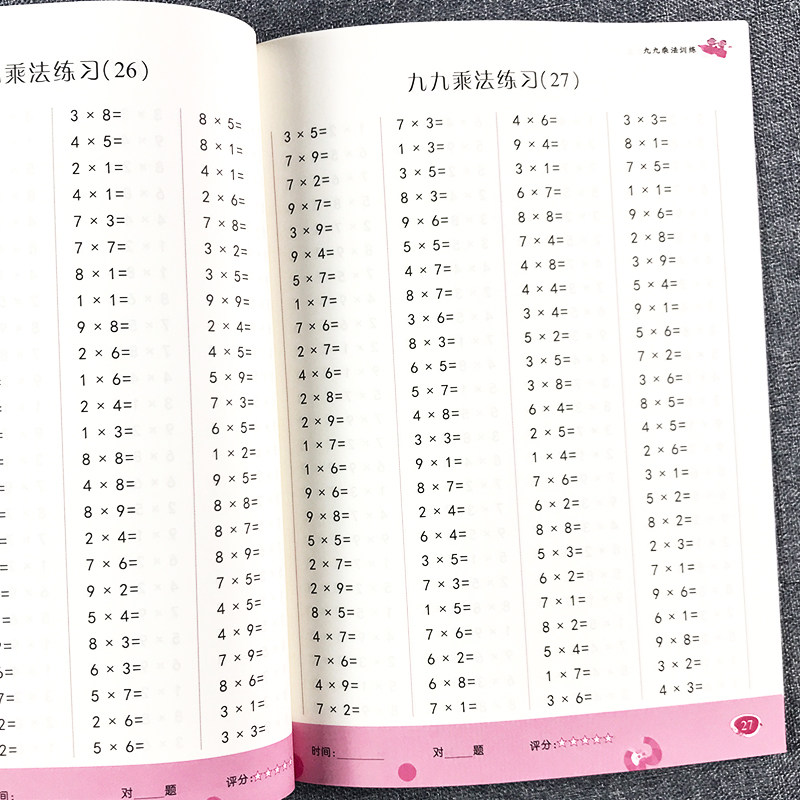 乘法练习(26)
3 × 8=
4 × 5=
2 × 1=
4 × 1=
7 × 3=
7 × 7=
8 × 1=
1 × 1=
9 × 8=
2 × 6=
1 × 6=
2 × 4=
1 × 3=
8 × 8=
4 × 8=
8 × 9=
2 × 4=
7 × 6=
9 × 2=
5 × 4=
8 × 3=
6 × 3=
5 × 7=
2 × 6=
5 × 6=
8 × 5=
8 × 1=
4 × 1=
2 × 6=
7 × 8=
3 × 2=
3 × 5=
9 × 9=
2 × 4=
4 × 5=
5 × 9=
7 × 3=
6 × 5=
1 × 2=
9 × 5=
8 × 8=
8 × 7=
8 × 9=
7 × 5=
4 × 5=
4 × 9=
7 × 9=
8 × 6=
3 × 1=
3 × 3=
时间:
对____题
评分:☆☆☆☆
九九乘法训练
九九乘法练习(27)
3 × 5=
7 × 9=
7 × 2=
9 × 7=
3 × 9=
9 × 4=
5 × 7=
1 × 7=
7 × 6=
2 × 7=
4 × 6=
2 × 8=
2 × 9=
1 × 7=
1 × 6=
9 × 6=
9 × 8=
5 × 5=
2 × 7=
2 × 9=
8 × 5=
4 × 7=
7 × 6=
4 × 9=
7 × 2=
7 × 3=
1 × 3=
3 × 5=
8 × 3=
9 × 6=
5 × 5=
4 × 7=
8 × 7=
3 × 6=
8 × 3=
6 × 5=
5 × 7=
4 × 8=
3 × 3=
9 × 1=
8 × 7=
2 × 4=
6 × 4=
3 × 5=
7 × 3=
1 × 5=
7 × 6=
6 × 2=
6 × 8=
7 × 1=
4 × 6=
9 × 4=
3 × 1=
6 × 7=
8 × 8=
7 × 4=
4 × 8=
4 × 4=
3 × 4=
5 × 2=
3 × 5=
3 × 8=
6 × 4=
2 × 5=
1 × 4=
7 × 6=
6 × 2=
8 × 8=
5 × 3=
6 × 2=
7 × 1=
8 × 2=
5 × 4=
1 × 7=
3 × 6=
3 × 3=
8 × 1=
7 × 5=
1 × 1=
9 × 6=
2 × 8=
3 × 9=
5 × 4=
9 × 1=
5 × 6=
7 × 2=
3 × 6=
8 × 5=
4 × 5=
2 × 6=
3 × 1=
5 × 2=
8 × 2=
2 × 3=
7 × 1=
9 × 6=
6 × 1=
9 × 8=
3 × 2=
4 × 3=
时间:______
对____题
评分:☆☆☆☆☆
27